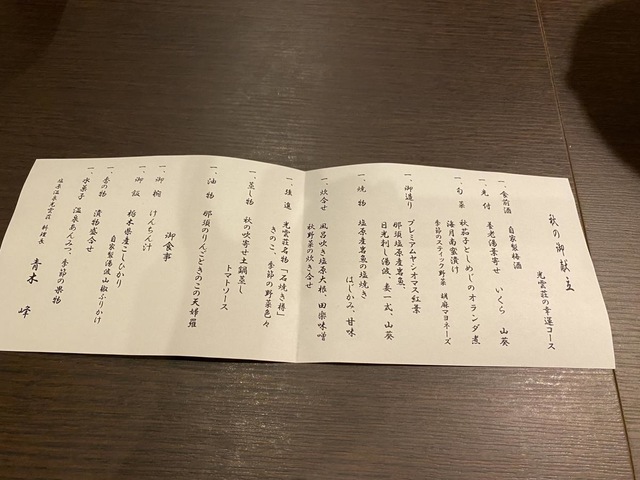 秋の御献立
光雲荘の幸運コース
一、食前酒 自家製梅酒
一、先付 養老湯葉寄せ いくら 山葵
一、旬菜 秋茄子としめじのオランダ煮
海月南蛮漬け
季節のスティック野菜 胡麻マヨネーズ
一、御造り プレミアムヤシオマス紅葉
那須塩原産岩魚、
日光刺し湯波、妻一式、山葵
一、焼物 塩原産岩魚の塩焼き
はじかみ、甘味
一、炊合せ 風呂吹き塩原大根、田楽味噌
秋野菜の炊き合せ
一、強進 光雲荘名物「石焼き樽」
きのこ、季節の野菜色々
一、蒸し物 秋の吹寄せ土鍋蒸し
トマトソース
一、油物 那須のりんごときのこの天婦羅
御食事
一、御椀 けんちん汁
一、御飯 栃木県産こしひかり
自家製湯波山椒ふりかけ
一、香の物 漬物盛合せ
一、水菓子 温泉あんみつ、季節の果物
塩原温泉光雲荘 料理長
青木 峰